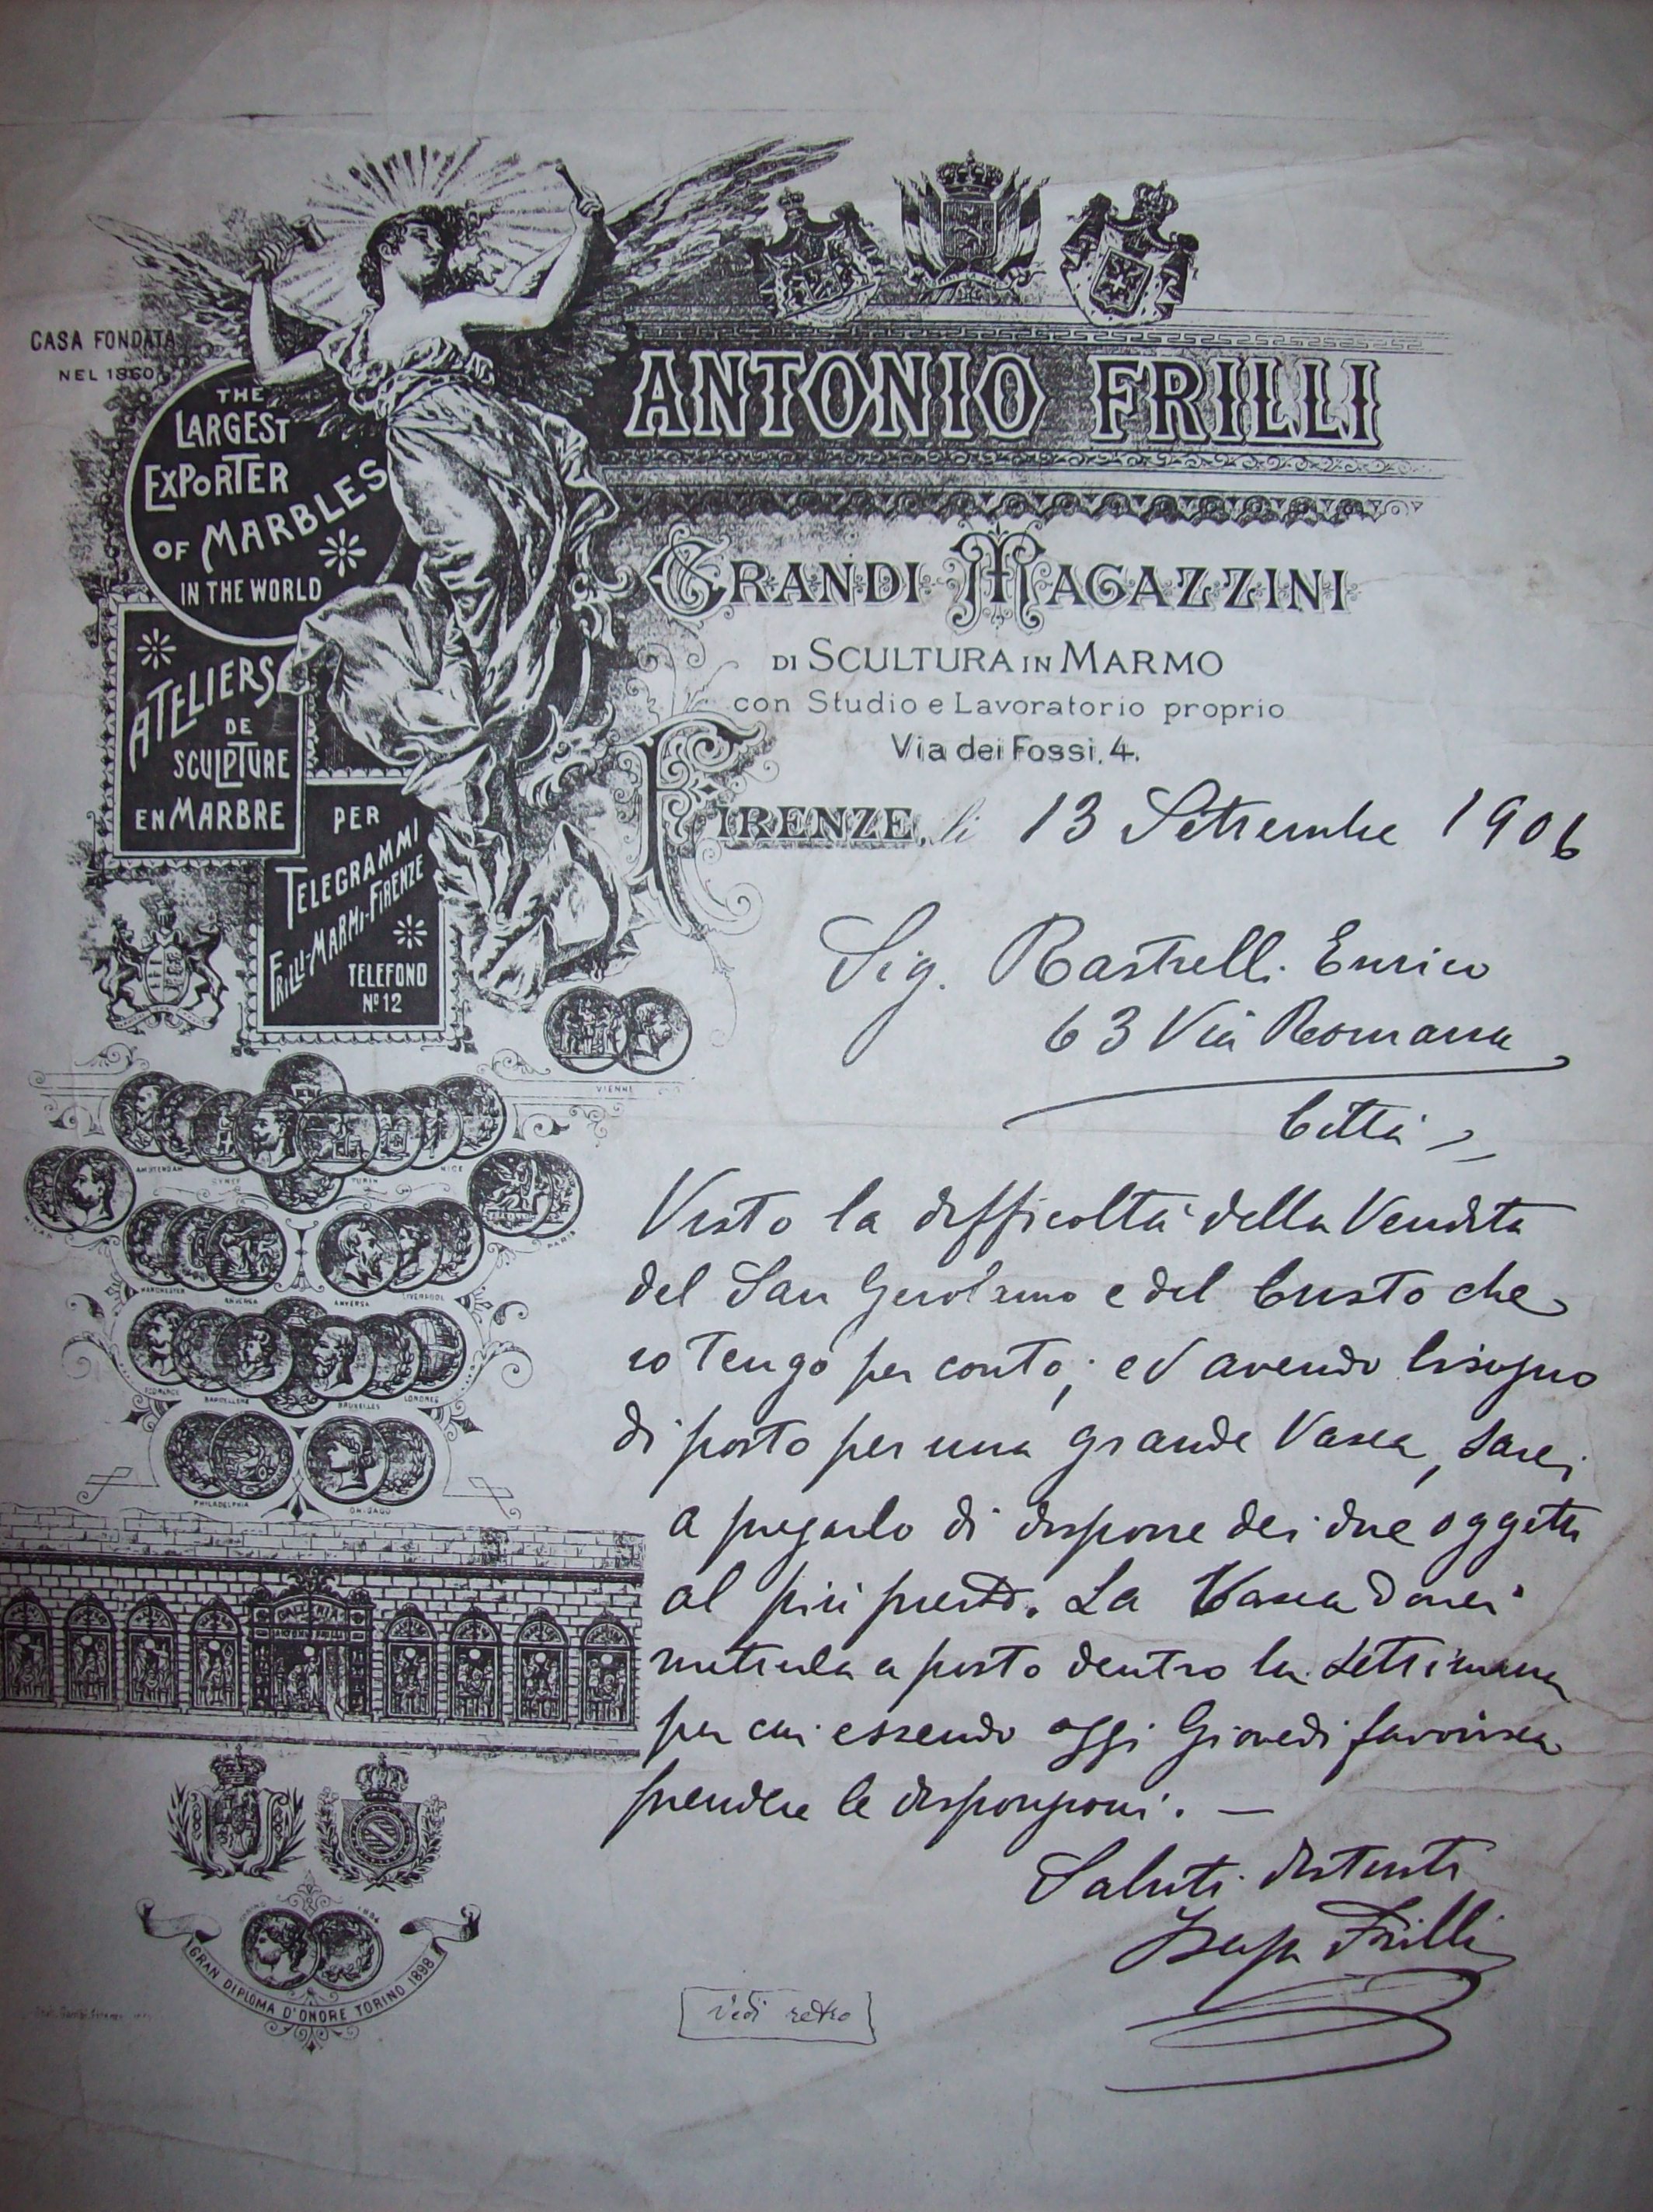 CASA FONDATA
NEL 1860
THE
LARGEST
EXPORTER
OF MARBLES
IN THE WORLD
ATELIERS
DE
SCULPTURE
EN MARBRE
PER
TELEGRAMMI
FRILLI-MARMI-FIRENZE
TELEFONO
No 12
ANTONIO FRILLI
GRANDI MAGAZZINI
DI SCULTURA IN MARMO
con Studio e Lavoratorio proprio
Via dei Fossi, 4.
FIRENZE, li 13 Settembre 1906
Sig. Rastrelli Enrico
63 Via Romana
Città
Visto la difficoltà della Vendita
del San Gerolamo e del busto che
io tengo per conto; ed avendo bisogno
di posto per una grande Vasca, sarei
a pregarlo di disporre dei due oggetti
al più presto. La Vasca dovrei
metterla a posto dentro la settimana
per cui essendo oggi Giovedì favorisca
prendere le disposizioni. —
Saluti distinti
Frilli
Vedi retro
VIENNE
AMSTERDAM
TURIN
NICE
MILAN
PARIS
MANCHESTER
ANVERSA
LIVERPOOL
BARCELLONE
BRUXELLES
LONDRES
PHILADELPHIA
CHICAGO
GALLERIA
GRAN DIPLOMA D'ONORE TORINO 1898